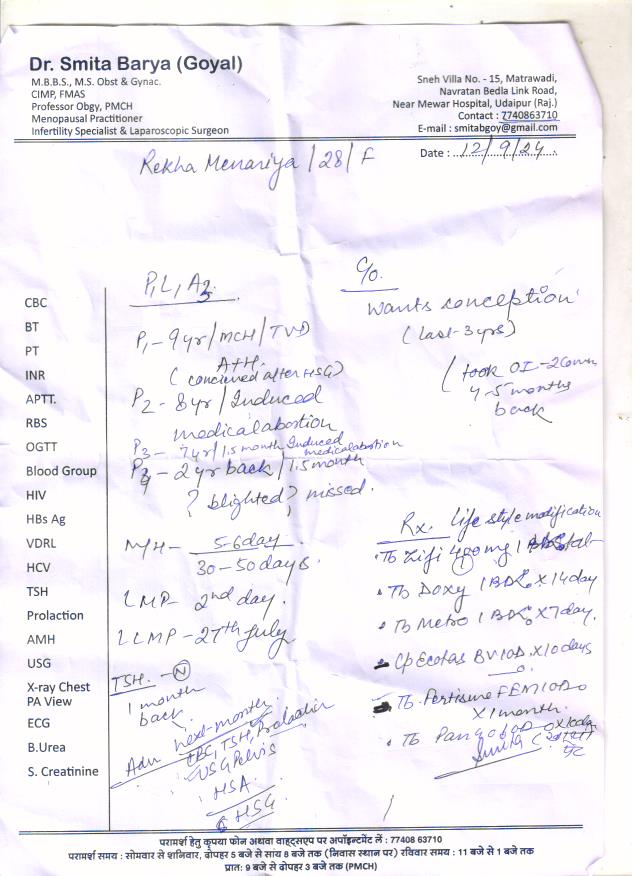 Dr. Smita Barya (Goyal)
M.B.B.S., M.S. Obst & Gynac.
CIMP, FMAS
Professor Obgy, PMCH
Menopausal Practitioner
Infertility Specialist & Laparoscopic Surgeon
Sneh Villa No. - 15, Matrawadi,
Navratan Bedla Link Road,
Near Mewar Hospital, Udaipur (Raj.)
Contact : 7740863710
E-mail : smitabgoy@gmail.com
Date : 12/9/24
Rekha Menariya / 28 / F
CBC
BT
PT
INR
APTT.
RBS
OGTT
Blood Group
HIV
HBs Ag
VDRL
HCV
TSH
Prolaction
AMH
USG
X-ray Chest
PA View
ECG
B.Urea
S. Creatinine
P1 L1 A3
P1 - 9yr / MCH / TVD
A+H
(conceived after HSG)
P2 - 8yr / Induced
medical abortion
P3 - 7yr / 1.5 month Induced
medical abortion
P4 - 2yr back / 1.5 month
? blighted ? missed.
M/H - 5-6 day
30-50 days.
LMP - 2nd day.
LLMP - 27th July
TSH. - N
1 month
back
Adv next month
CBC, TSH, Prolactin
USG Pelvis
HSA
HSG
C/o.
wants conception
(last - 3yrs)
(took OI -
4-5 months
back
Rx. Life style modification
Tb Zifi 400mg 1
Tb Doxy 1 BD X 14 day
Tb Metro 1 BD X 7 day.
Cp Ecotas BV 1 OD X 10 days
Tb Fertisure FEM 1 OD
X 1 month.
Tb Pan 40 OD X 10 day
परामर्श हेतु कृपया फोन अथवा वाह्टसएप पर अपॉइन्टमेंट लें : 77408 63710
परामर्श समय : सोमवार से शनिवार, दोपहर 5 बजे से सांय 8 बजे तक (निवास स्थान पर) रविवार समय : 11 बजे से 1 बजे तक
प्रातः 9 बजे से दोपहर 3 बजे तक (PMCH)